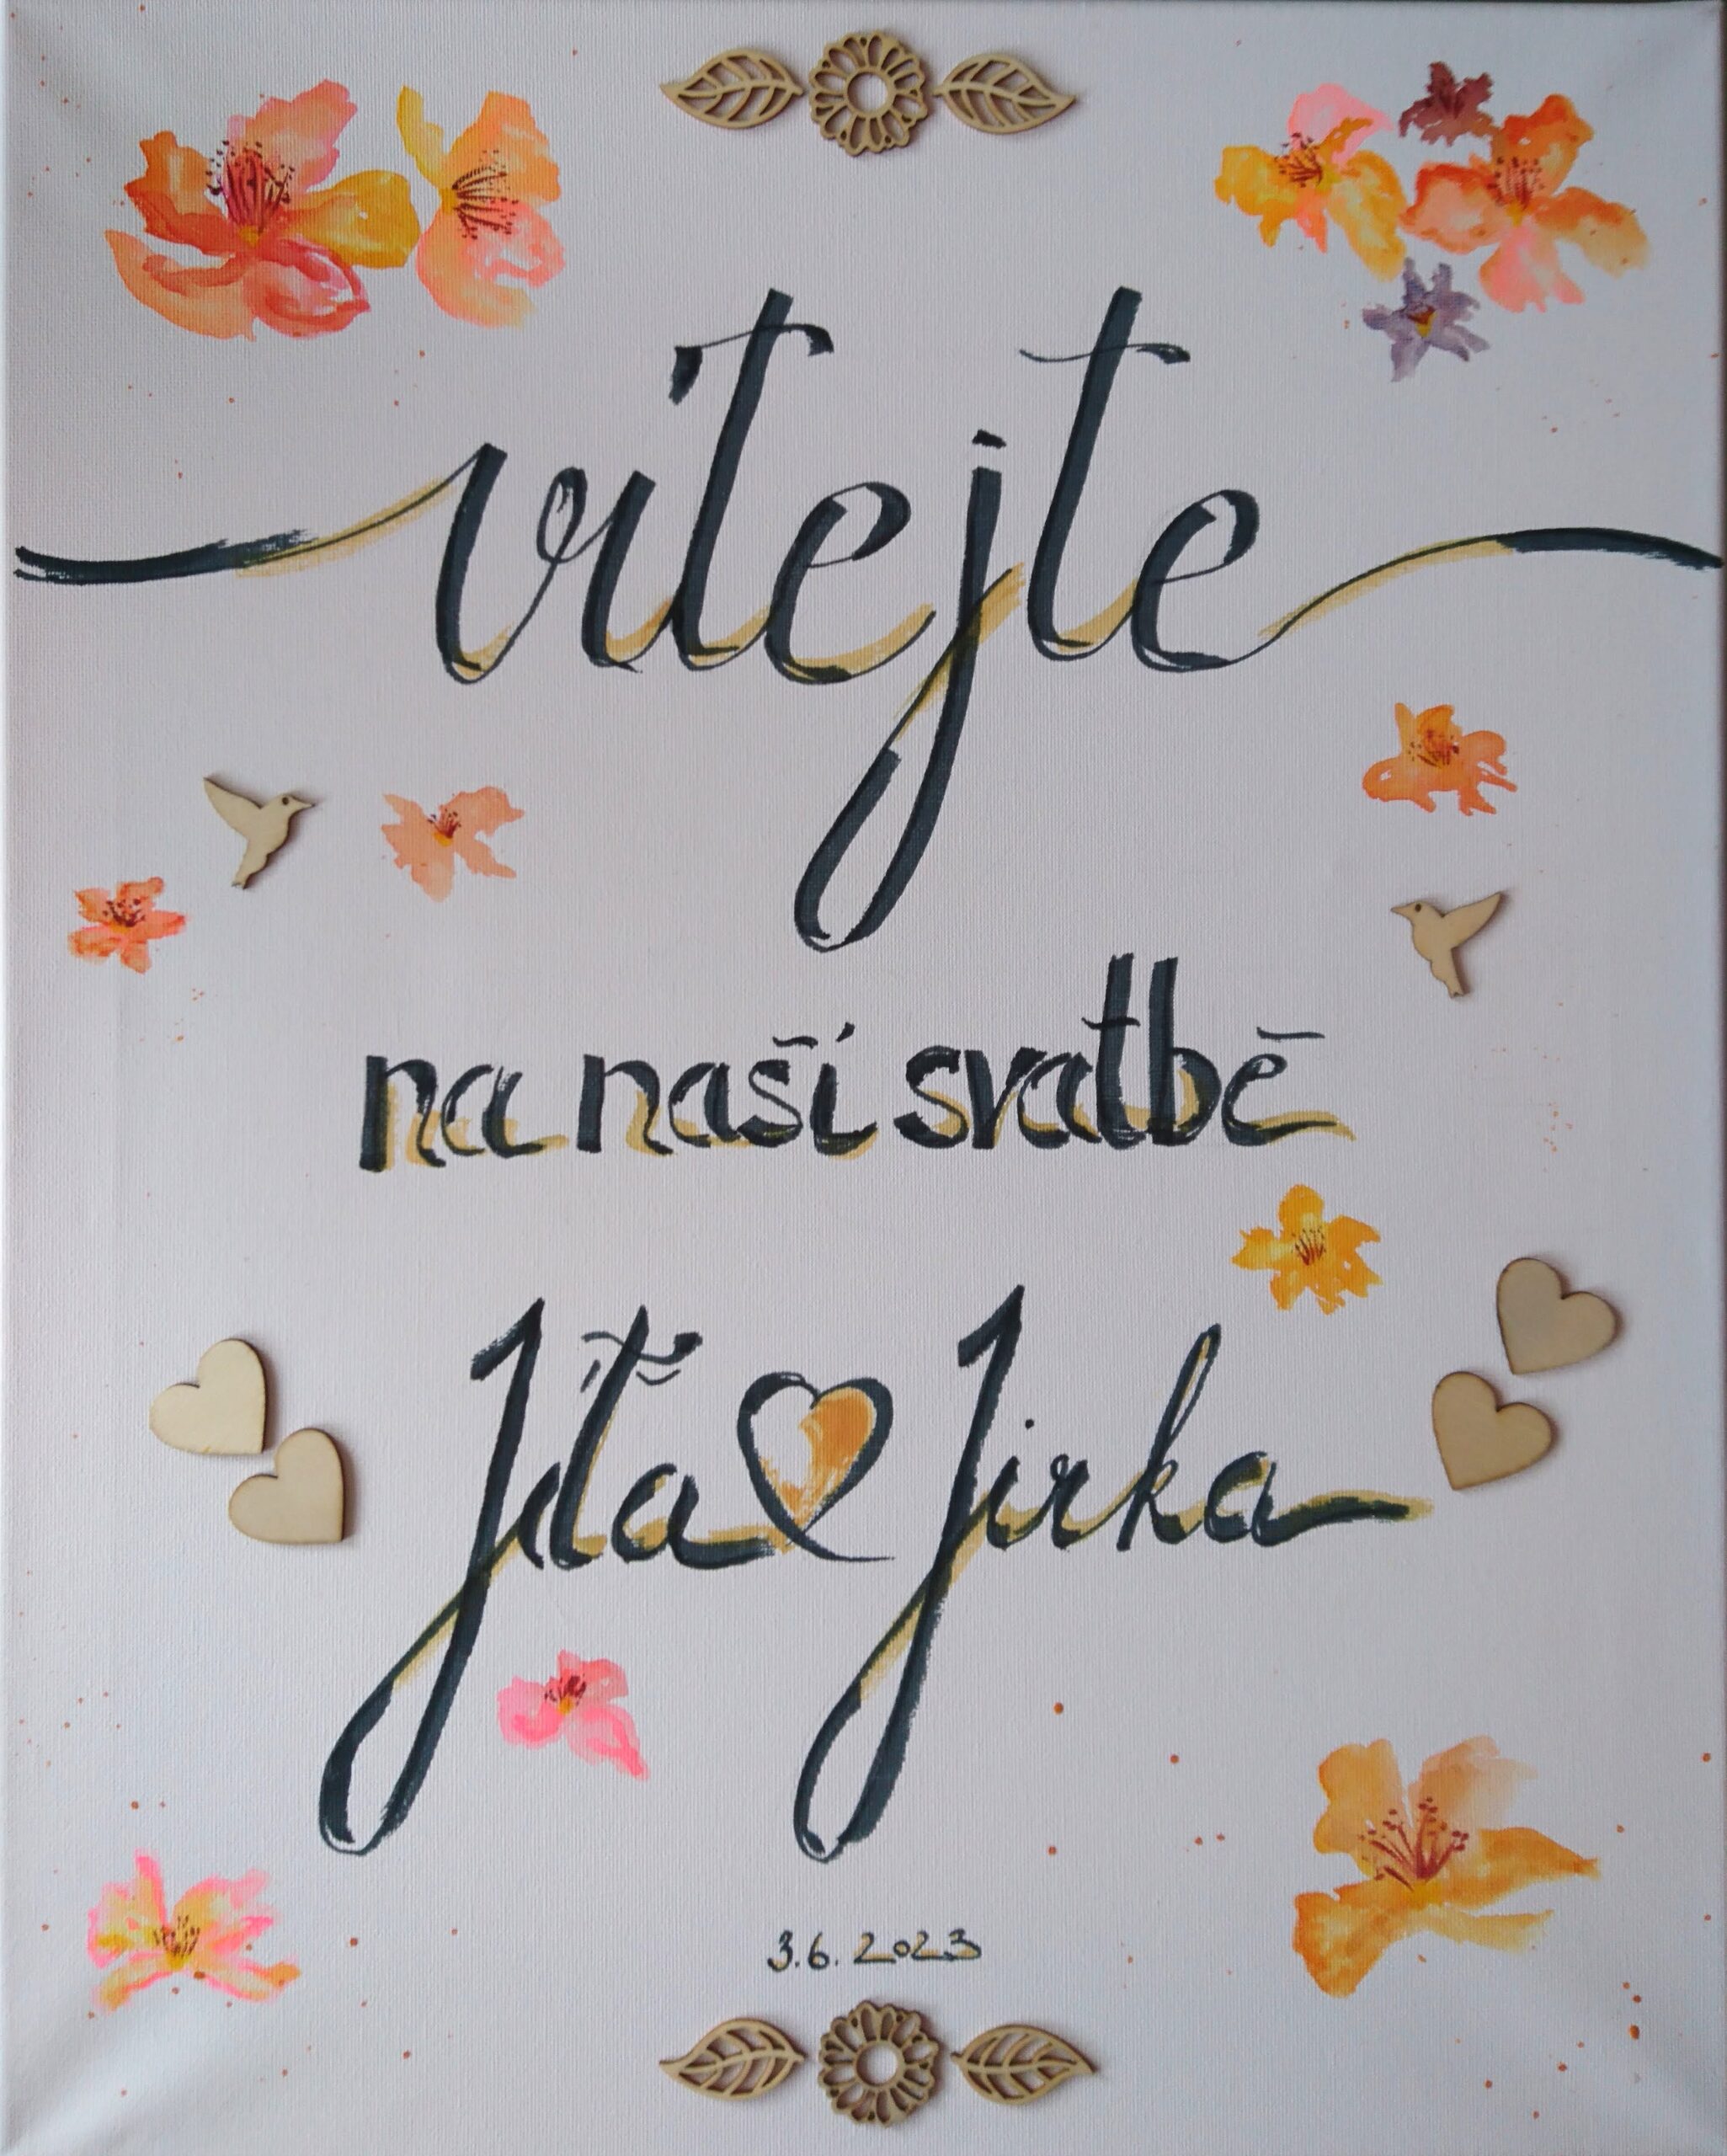 vítejte
na naší svatbě
Jíťa Jirka
3.6.2023